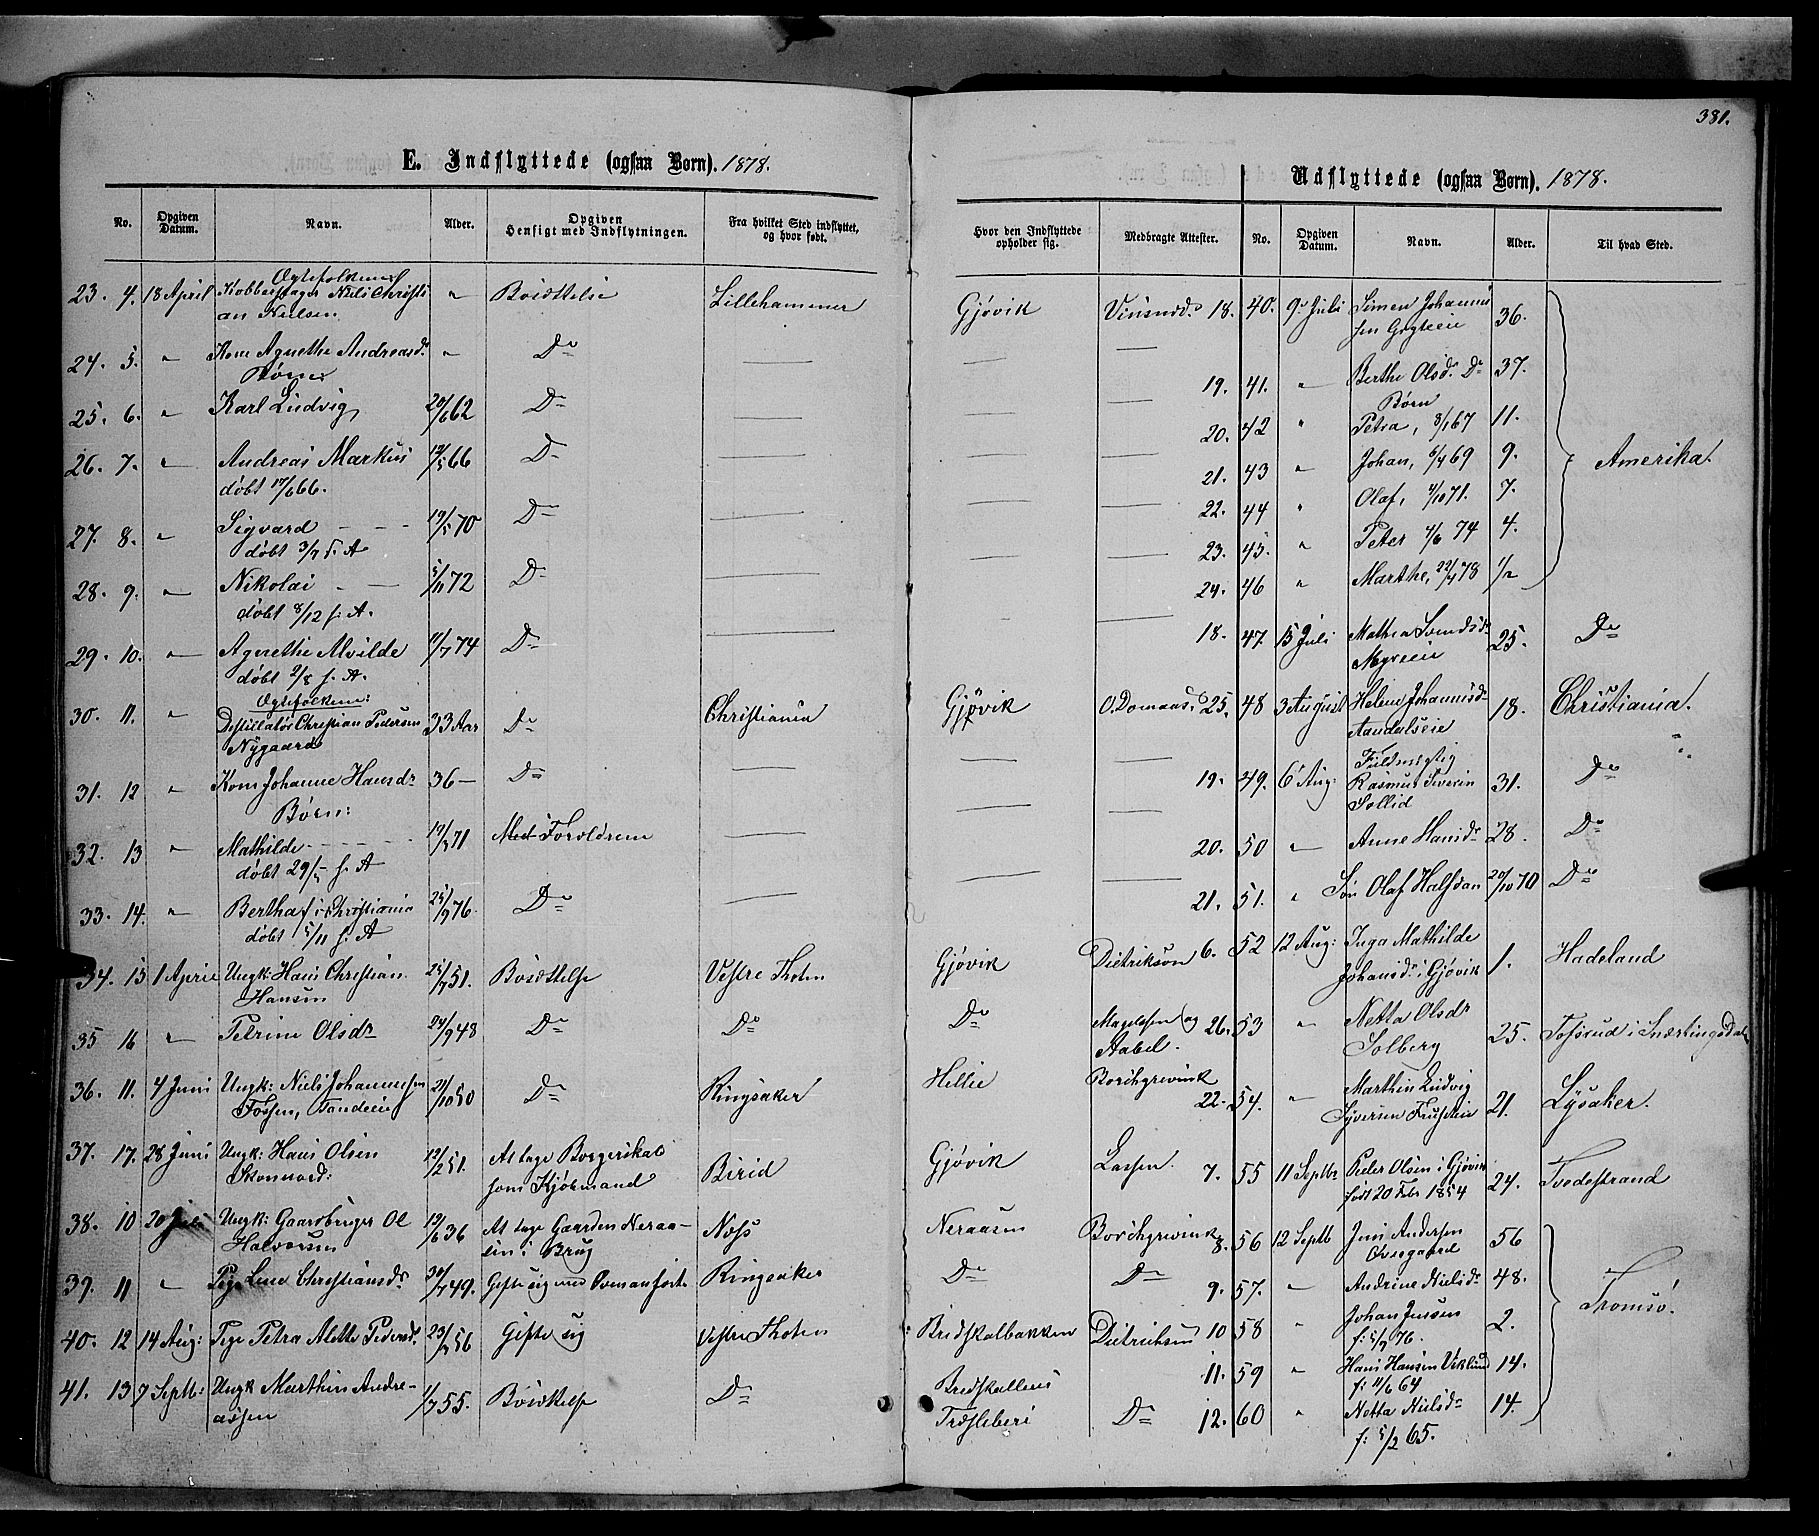 381.
E. Indflyttede (ogsaa Børn). 1878.
No. Opgiven Datum. Navn. Alder. Opgiven Hensigt med Indflytningen. Fra hvilket Sted indflyttet, og hvor født.
23. 4. 18 April Ægtefolkene Kobberslager Niels Christi
an Nielsen " Bosættelse Lillehammer
24. 5. " Kone Agnethe Andreasd. " Do
Børn
25. 6. " Karl Ludvig 20/6 62 Do
26. 7. " Andreas Markus 12/5 66 Do
døbt 17/6 66.
27. 8. " Sigvard 19/5 70 Do
døbt 3/7 s. A
28. 9. " Nikolai 5/11 72 Do
døbt 8/12 s. A.
29. 10. " Agnethe Alvilde 11/7 74 Do
døbt 2/8 s. A.
Ægtefolkene:
30. 11. " Destillatør Christian Pedersen 33 Aar Do Christiania
Nygaard
31. 12 " Kone Johanne Hansdr 36 Do
Børn:
32. 13 " Mathilde 19/3 71 Med Forældrene
døbt 29/5 s. A
33. 14. " Bertha f i Christiania 25/9 76. Do
døbt 5/11 s. A
34. 15 1 April Ungk: Hans Christian 25/7 51. Bosættelse Vestre Thoten
Hansen
35 16 " Petrine Olsdr 24/9 48 Do Do
36. 11. 4 Juni Ungk: Niels Johannesen 21/10 50 Do Ringsaker
Fossen,
37. 17. 28 Juni Ungk: Hans Olsen 12/2 51. At tage Borgerskab Birid
som Kjøbmand
38. 10 20 Juli Ungk: Gaardbruger Ol 19/6 36 At tage Gaarden Neraa- Næs
Halvorsen sen i Brug
39. 11 " Pige Lene Christiansdr 30/7 49. Gifte sig med Formanførte Ringsaker
40. 12 14 Aug: Pige Petra Alette Pedersd. 23/3 56 Gifte sig Vestre Thoten
41. 13 7 Septb: Ungk Marthin Andre- 1/7 55. Bosættelse Do
assen
Udflyttede (ogsaa Børn). 1878.
Hvor den Indflyttede opholder sig. Medbragte Attester. No. Opgiven Datum. Navn. Alder. Til hvad Sted.
Gjøvik Vinsnæs 18. 40. 9 Juli Simen Johannes 36.
sen
19. 41. " Berthe Olsdr. Do 37.
Børn
20. 42 " Petra, 8/1 67 11.
21. 43 " Johan, 5/4 69 9. Amerika.
22. 44 " Olaf, 4/10 71. 7.
23. 45. " Peter 4/6 74 4.
24. 46 " Marthe, 22/4 78 1/2
18. 47. 15 Juli Mathea Svendsdr 25. Do
Myreeie
Gjøvik O. Domaas. 25. 48 3 August Helene Johannesdr 18. Christiania.
Aandalseie
Fuldmægtig
19. 49. 6 Aug: Rasmus Severin 31. Do
Sollid
20. 50 " Anne Hansdr 28. Do
21. 51. " Søn Olaf Halfdan 20/10 70 Do
Gjøvik Dietrikson 6. 52 12 Aug: Inga Mathilde 1. Hadeland
Johansdr i Gjøvik
Do Magelssen og 26. 53 " Netta Olsdr 25. Tosrud i Snærtingsdal
Stabel. Solberg
Hellie Borchgrevink 22. 54. " Marthin Ludvig 21. Lysaker.
Syversen
Gjøvik Lassen. 7. 55 11 Septbr Peder Olsen i Gjøvik 24. Tvedestrand
født 20 Febr 1854
Neraasen Borchgrevink 8. 56 12 Septb Jens Andersen 56
Do Do 9. 57. " Andrine Nielsdr 48. Tromsø.
Bredskalbakken Dietrikson 10 58 " Johan Jensen 2.
f: 5/9 76.
Bredskallens 11. 59 " Hans Hansen Viklund 14.
f: 11/6 64
Do 12. 60 " Netta Nielsdr 14.
f: 5/2 65.